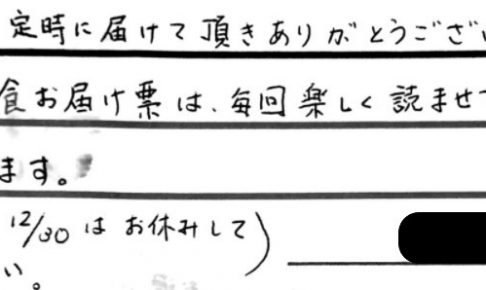 定時に届けて頂きありがとうござい
食お届け票は、毎回楽しく読ませて
ます。
12/30はお休みして)
い。